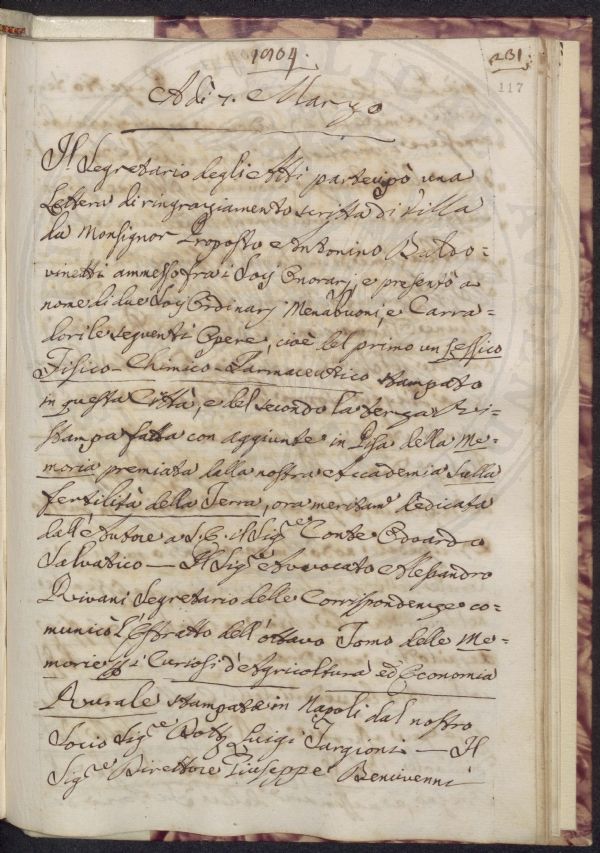 1804.
231.
117
Adì 7. Marzo
Il Segretario degli Atti partecipò una
Lettera di ringraziamento scritta di Villa
da Monsignor Proposto Antonino Baldo=
vinetti ammesso fra i Socj Onorarj, e presentò a
nome di due Socj Ordinarj Menabuoni, e Carra=
dori le seguenti Opere, cioè del primo un Lessico
Fisico-Chimico-Farmaceutico stampato
in questa Città, e del secondo la terza Ri=
stampa fatta con aggiunte in Pisa della Me=
moria premiata dalla nostra Accademia Sulla
fertilità della Terra, ora meritam.e dedicata
dall'Autore a S.E. il Sig.e Conte Odoardo
Salvatico — Il Sig.e Avvocato Alessandro
Rivani Segretario delle Corrispondenze co=
municò l'Estratto dell'ottavo Tomo delle Me=
morie pei Curiosi d'Agricoltura ed Economia
Rurale stampate in Napoli dal nostro
Socio Sig.e Dott. Luigi Targioni — Il
Sig.e Direttore Giuseppe Bencivenni